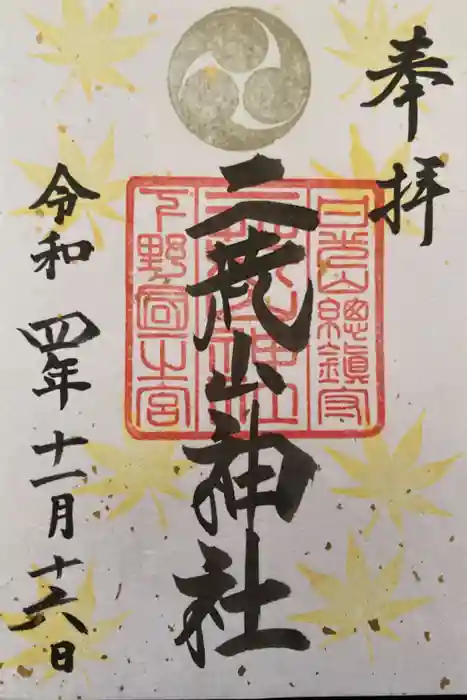 奉拝
日光山總鎮守
二荒山神社
二荒山神社
下野國一之宮
令和四年十一月十六日